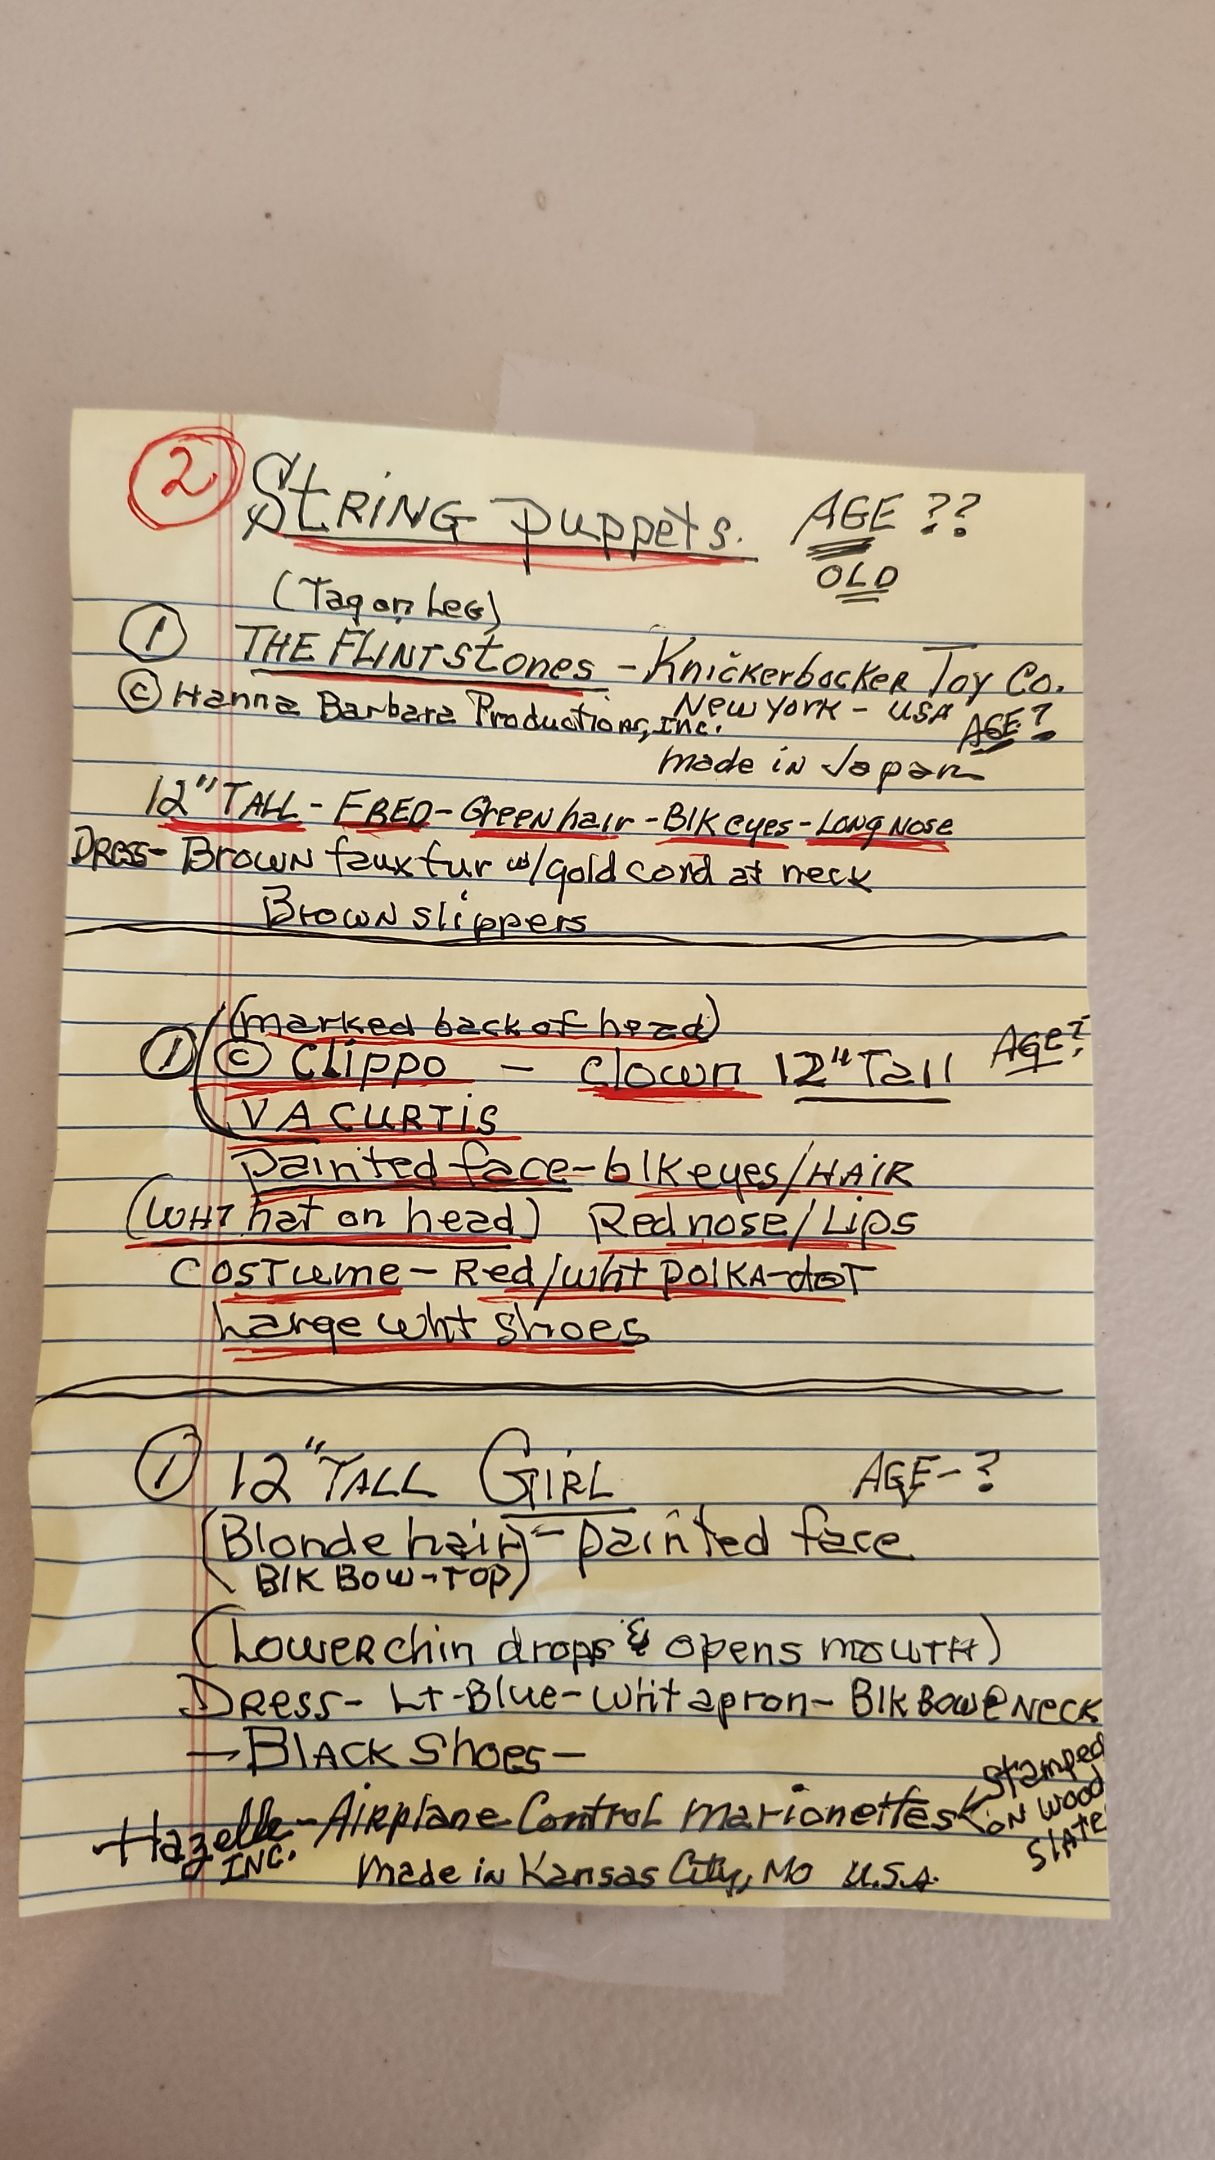 ② String puppets. AGE ??
OLD
(Tag on Leg)
① THE FLINTStones - Knickerbocker Toy Co.
© Hanna Barbara Productions, Inc. New York - USA AGE?
made in Japan
12" TALL - FRED - Green hair - Blk eyes - LONG NOSE
DRESS - Brown faux fur w/gold cord at neck
Brown slippers
(marked back of head)
① © Clippo - clown 12" Tall AGE?
VA CURTIS
painted face - blk eyes/HAIR
(WHT hat on head) Red nose/Lips
COSTUME - Red/wht POLKA-dot
Large wht shoes
① 12" TALL GIRL AGE - ?
(Blonde hair - painted face
Blk BOW - TOP)
(Lower chin drops & opens mouth)
Dress - Lt-Blue - wht apron - Blk Bow @ Neck
- BLACK Shoes -
Hazelle INC. - Airplane Control Marionettes < stamped ON WOOD SLATE
Made in Kansas City, Mo U.S.A.